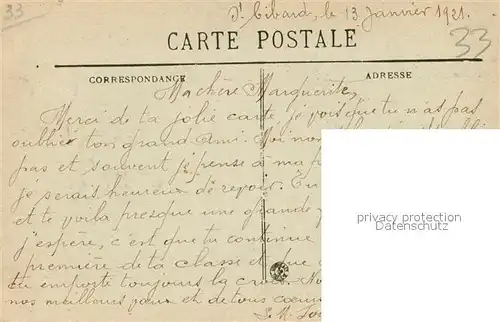 33
St Cibard, le 13 Janvier 1921.
33
CARTE POSTALE
CORRESPONDANCE
ADRESSE
Ma chère Marguerite,
Merci de ta jolie carte, je vois que tu n'as pas
oublié ton grand Ami. Moi non
pas et souvent je pense à ma
je serais heureux de revoir. Tu
et te voilà presque une grande
j'espère, c'est que tu continue
première de ta classe et que
tu emporte toujours la croix.
nos meilleurs vœux et de tous cœurs
privacy protection
Datenschutz